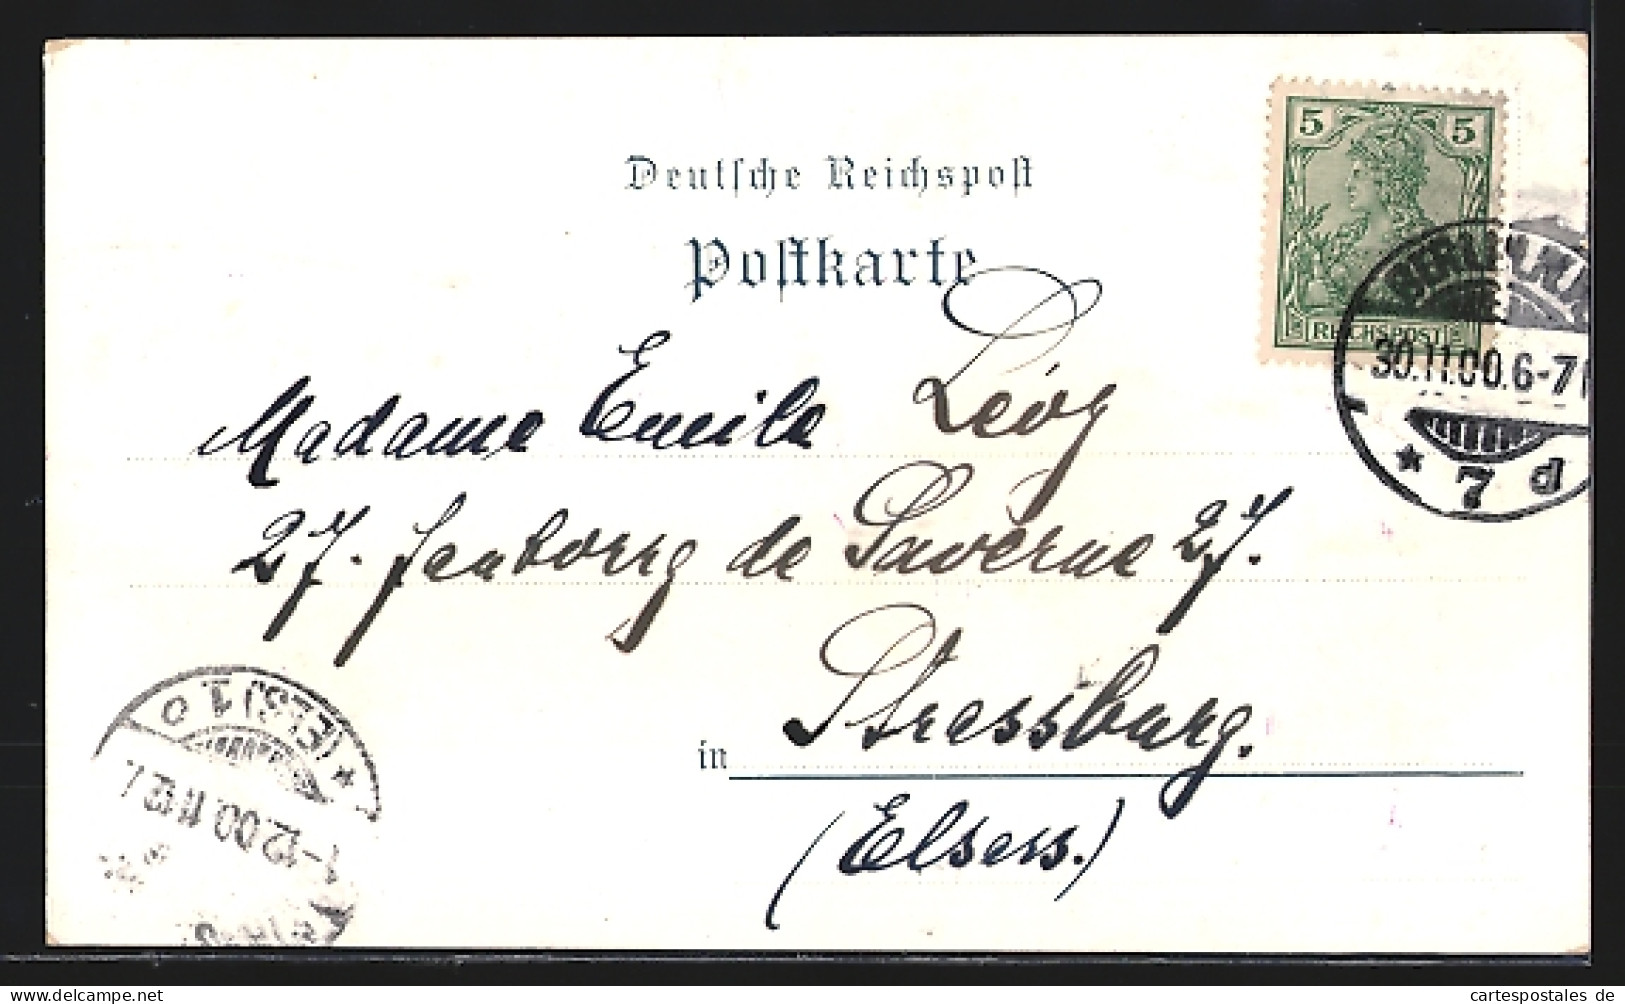 Deutsche Reichspost
Postkarte
5 5
REICHSPOST
BERLIN N.W.
30.11.00.6-7
* 7 d
Madame Emile Lévy
27. Faubourg de Saverne 27.
in Strassburg.
(Elsass.)
* (ELS) 1 o
12.00. 11-12
cartespostales de